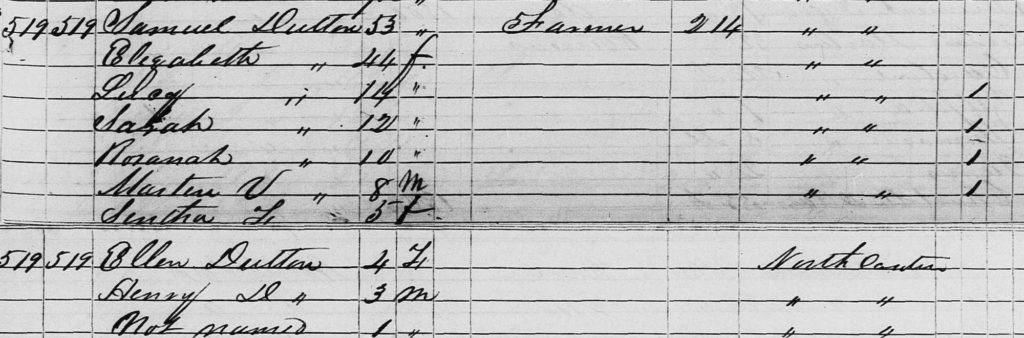 519 519 Samuel Dutton 53 " Farmer 214 " "
Elizabeth " 44 f. " "
Lucy " 14 " " " 1
Sarah " 12 " " " 1
Rosanah " 10 " " " 1
Martin V " 8 m " " 1
Sintha F 5 f
519 519 Ellen Dutton 4 F North Carolin
Henry D " 3 m " "
Not named 1 " " "